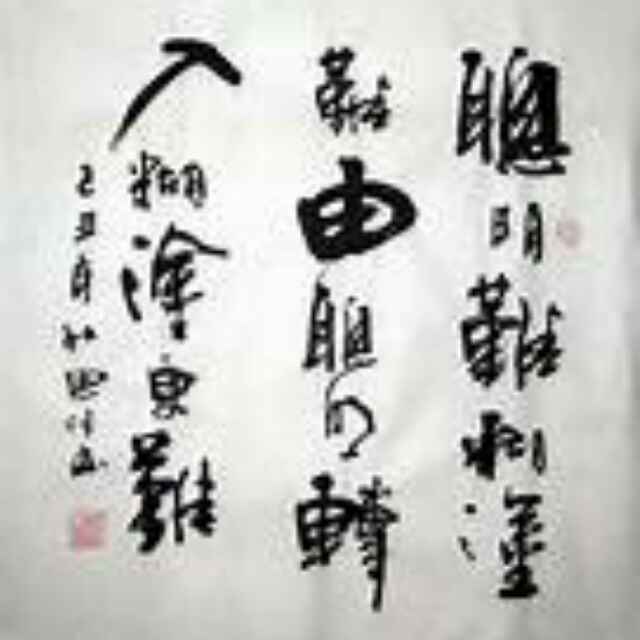 聰明難糊塗
難由聰明轉
入糊塗更難
己丑年